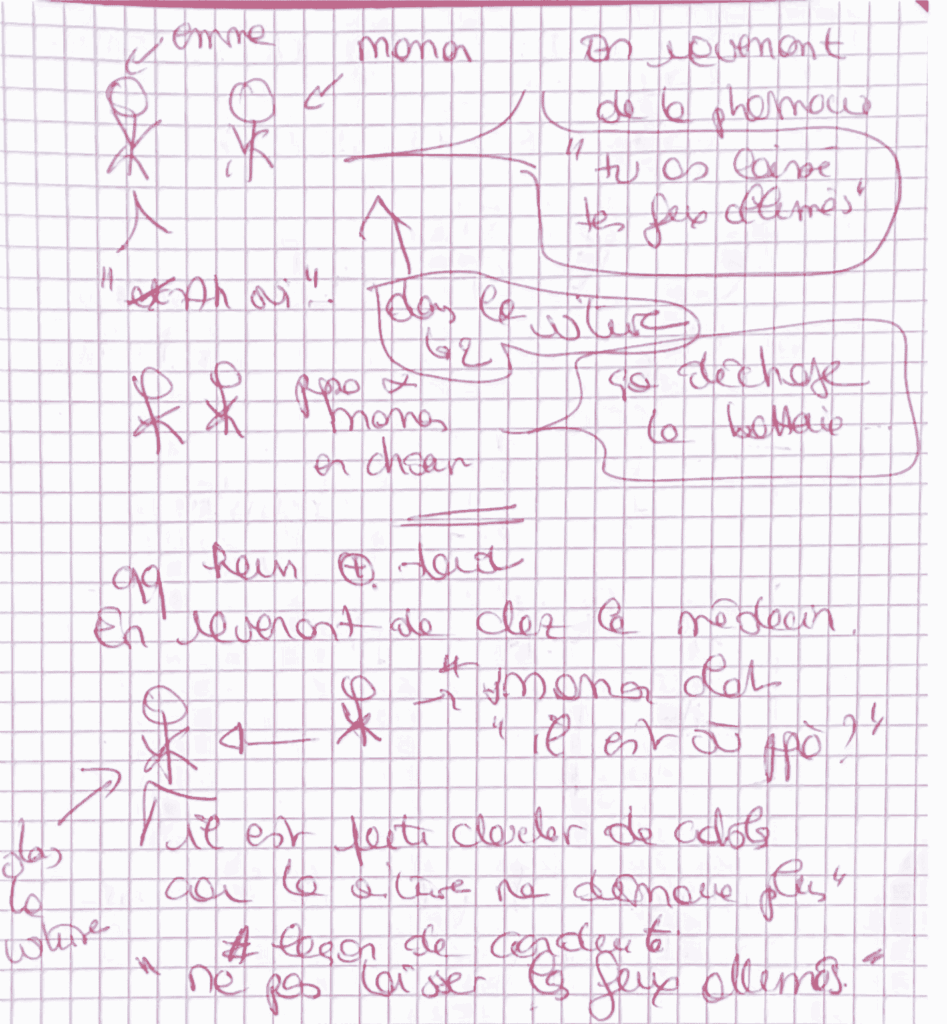 emme
maman
En revenant
de la pharmacie
"tu as laissé
tes feux allumés"
"Ah oui".
dans la voiture
papa &
maman
en chœur
ça décharge
la batterie
qq heures ⊕ tard
En revenant de chez le médecin.
maman dit
"il est où ppa ?"
il est parti chercher de cables
car la voiture ne démarre plus"
dans
la
voiture
# leçon de conduite
"ne pas laisser les feux allumés."